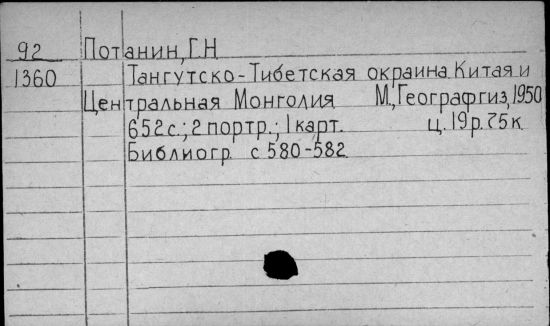 92 Потанин, Г.Н
1360 Тангутско-Тибетская окраина Китая и
Центральная Монголия М., Географгиз, 1950
652с.; 2 портр.; 1 карт. ц. 19р.75к
Библиогр. с 580-582